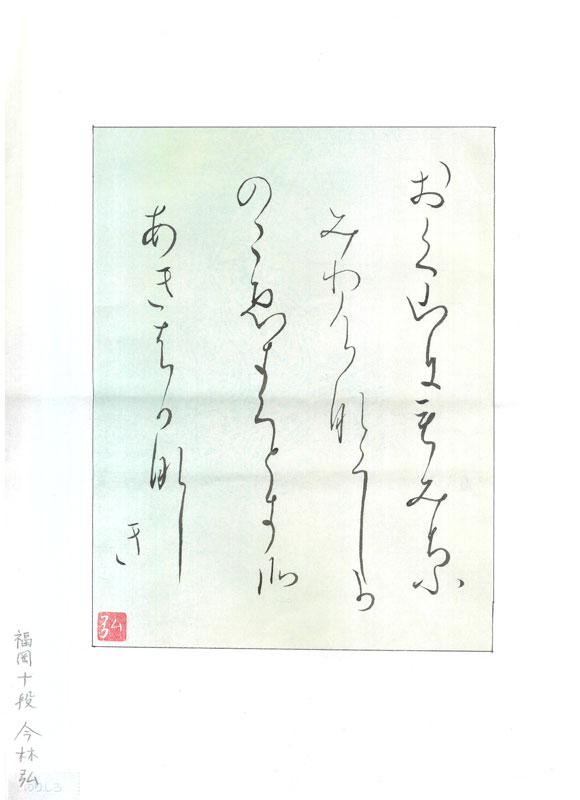 おく山にもみちふ
みわけなくしか
のこゑきくときそ
あきはかなし
き
弘
福岡十段 今林弘